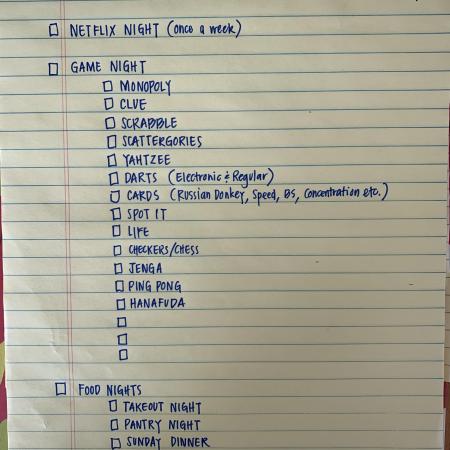 NETFLIX NIGHT (once a week)
GAME NIGHT
MONOPOLY
CLUE
SCRABBLE
SCATTERGORIES
YAHTZEE
DARTS (Electronic & Regular)
CARDS (Russian Donkey, Speed, BS, Concentration etc.)
SPOT IT
LIFE
CHECKERS/CHESS
JENGA
PING PONG
HANAFUDA
FOOD NIGHTS
TAKEOUT NIGHT
PANTRY NIGHT
SUNDAY DINNER